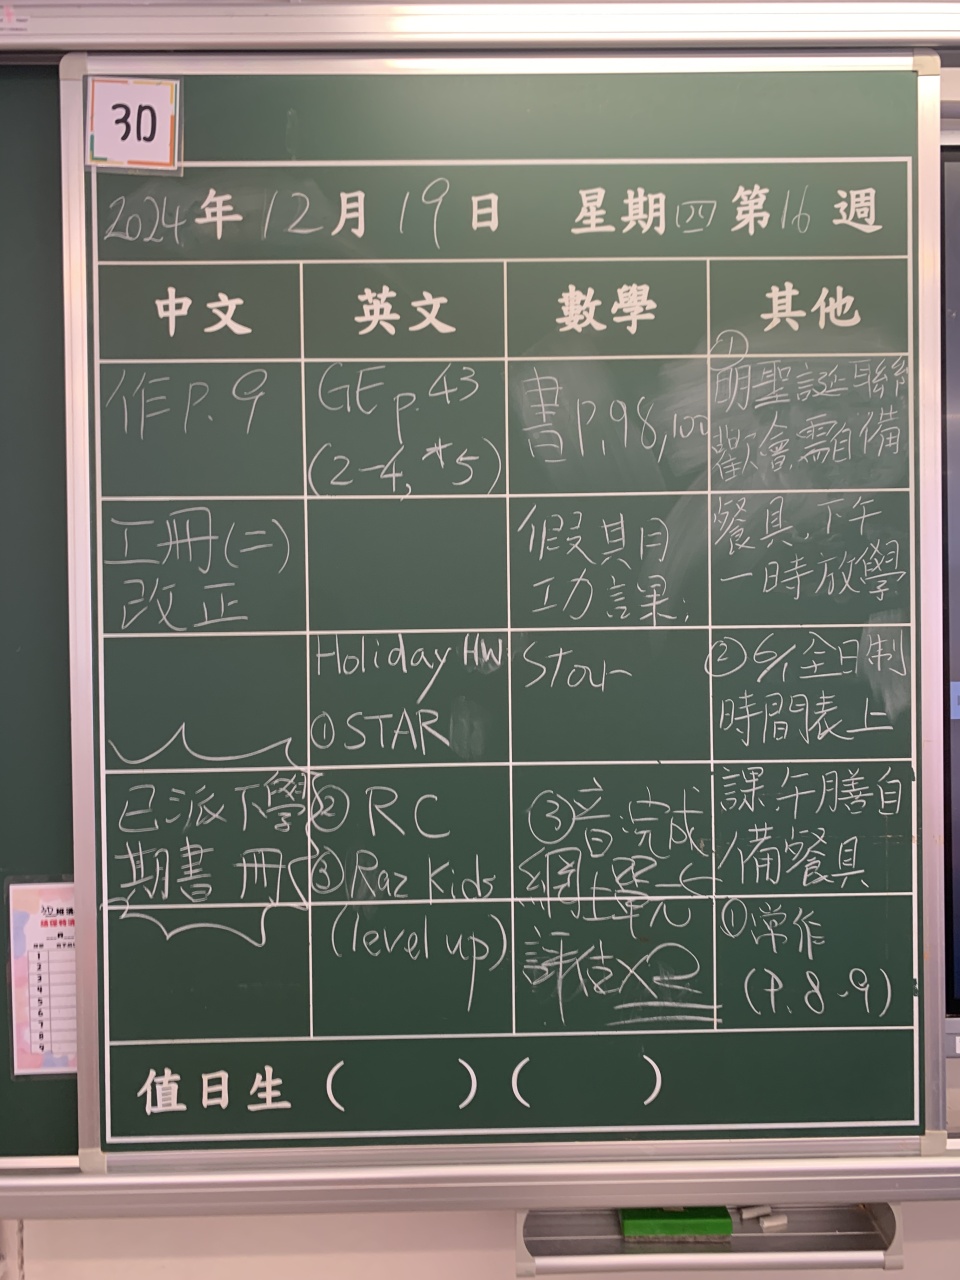 3D
2024年12月19日 星期四第16週
中文 英文 數學 其他
作P.9
工冊(二)
改正
已派下學
期書冊
GE p.43
(2-4, *5)
Holiday HW
①STAR
②RC
③Raz Kids
(level up)
書P.98,100
假其月
功課:
Star
③音完成
網上單元
評估x2
①
明聖誕聯
歡會需自備
餐具,下午
一時放學
②6/1全日制
時間表上
課午膳自
備餐具
①常作
(P.8-9)
值日生( )( )
1
2
3
4
5
6
7
8
9